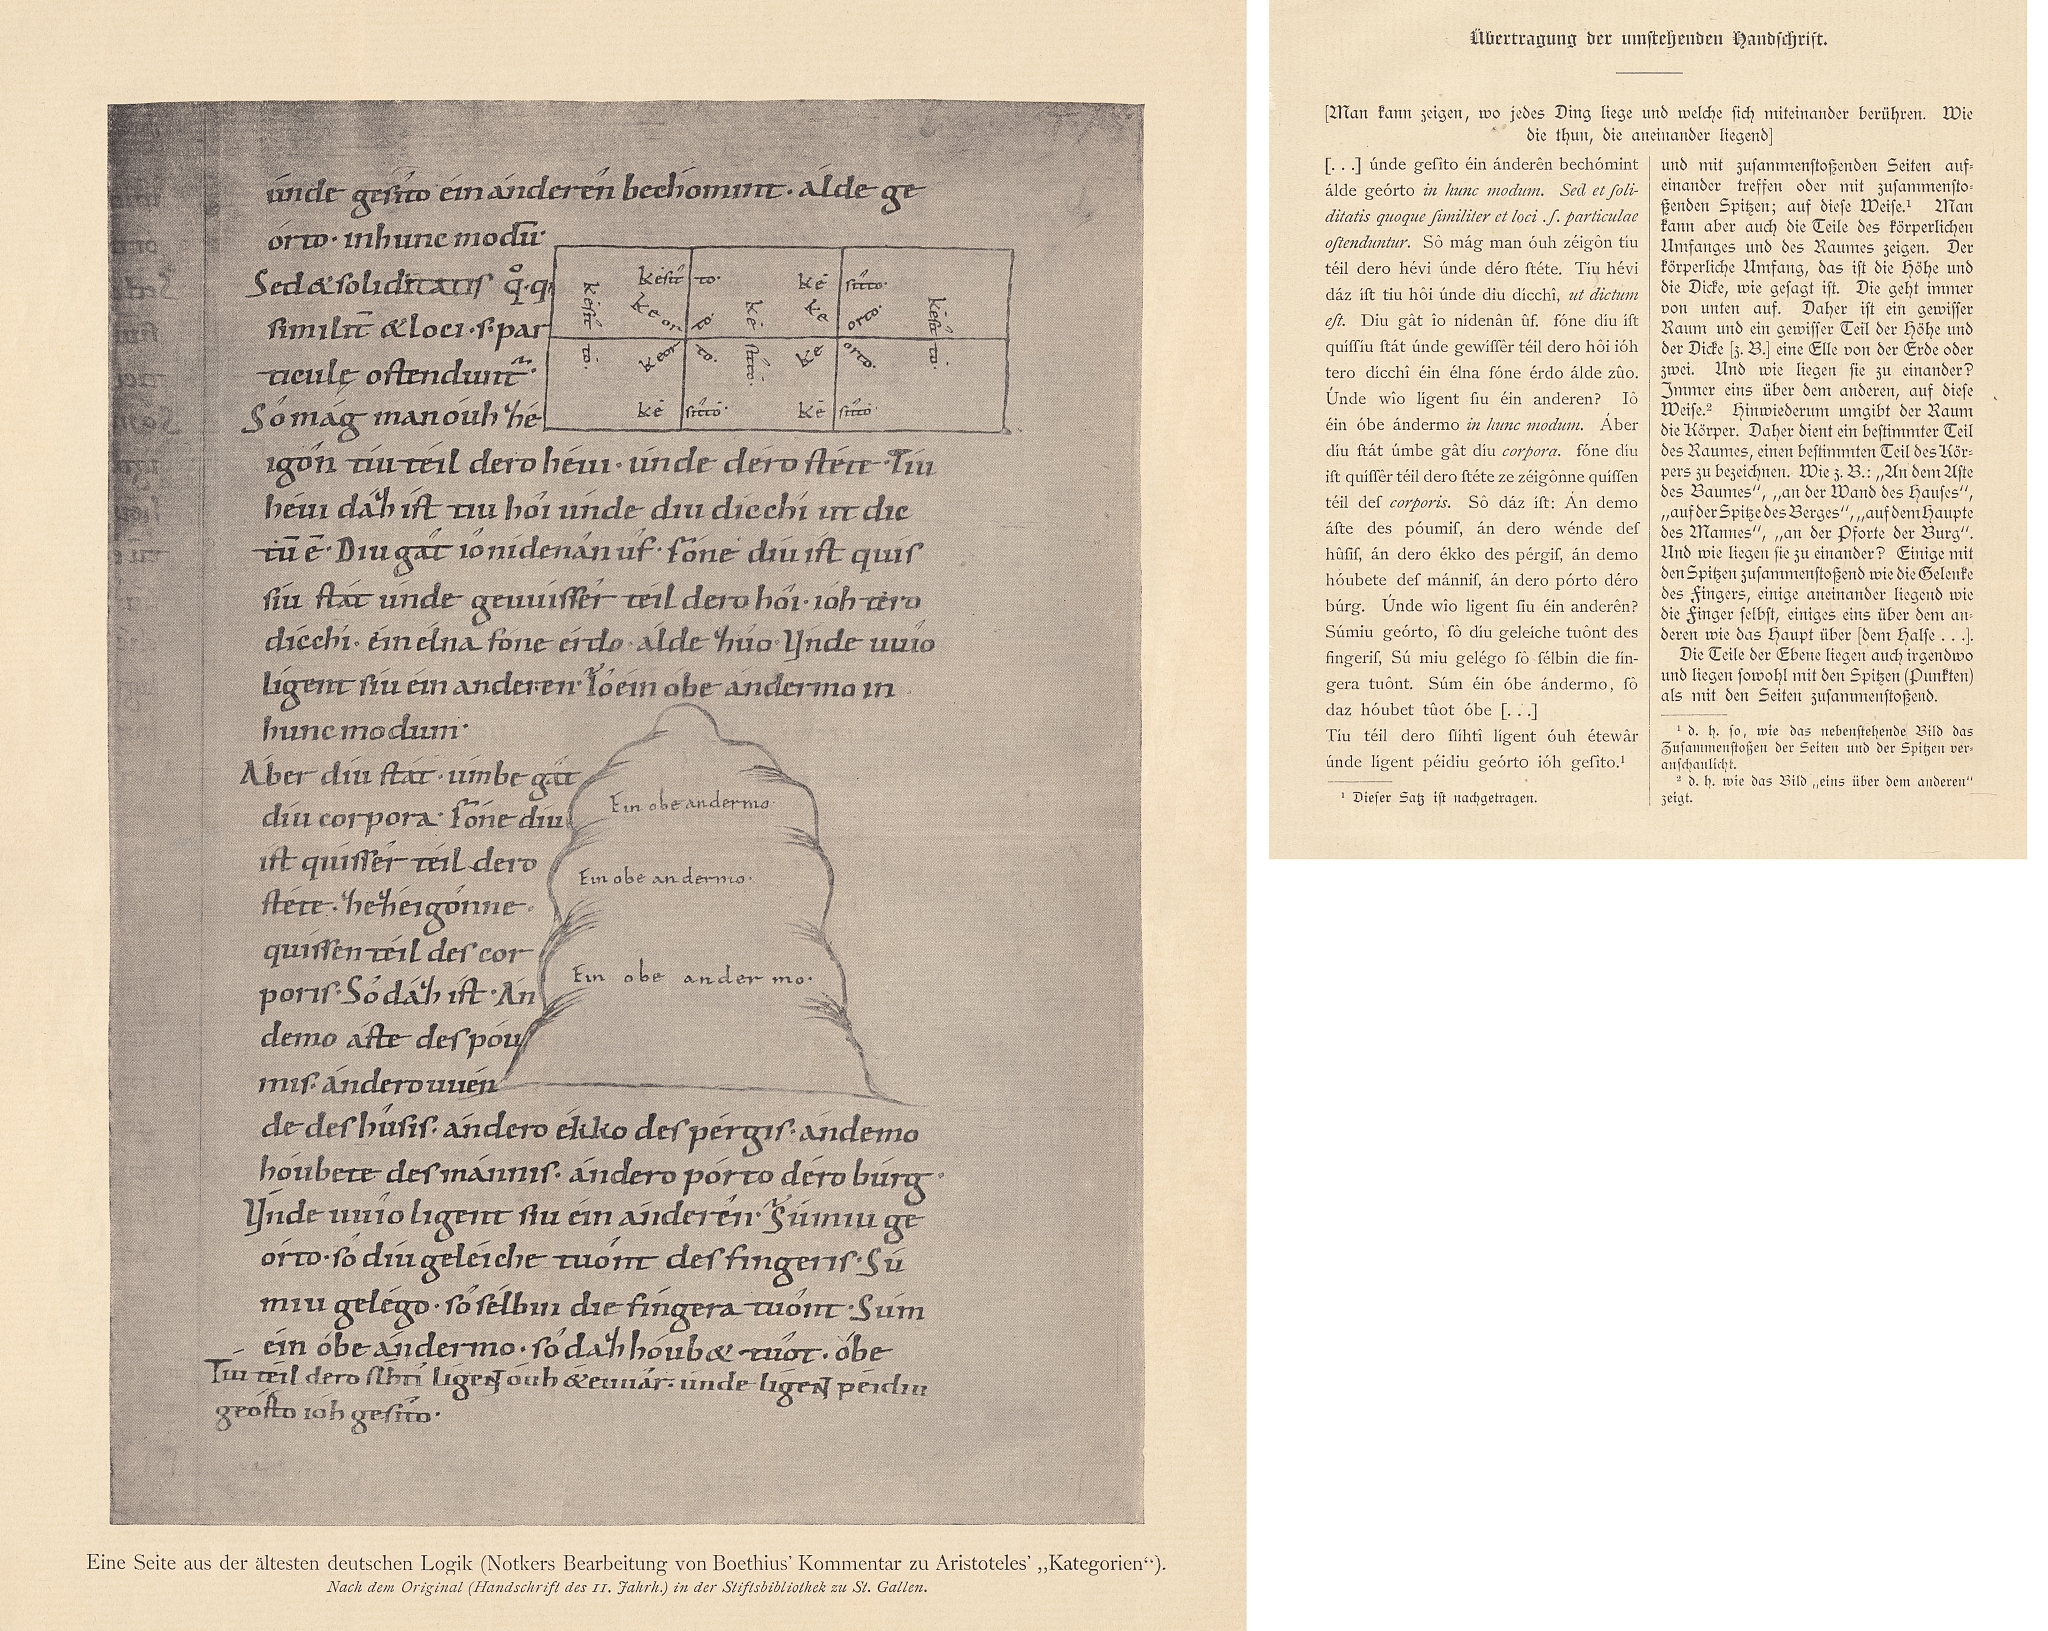 únde gesíto éin ánderên bechómint · álde ge
órto · in hunc modū·
Sed & soliditatis q̊·q;
similit̄ & loci · s · par
ticulę ostendunt᷑·
Sô mág man óuh zé
igôn tíu téil dero hévi · únde déro stéte · Tíu
hévi dáz íst tiu hôi únde diu dicchi ut dic
tū ē· Diu gât îo nídenân ûf · fóne díu íst quis
síu stát únde geuuissêr téil dero hôi · ióh tero
dicchi · éin élna fóne érdo · álde zûo · Únde uuîo
lígent síu éin anderen· Iô éin óbe ándermo in
hunc modum·
Áber díu stát · úmbe gât
díu corpora · fóne díu
íst quissêr téil dero
stéte · ze zéigônne ·
quissen téil des cor
poris · Sô dáz íst · Án
demo áste des póu
mis · án dero uuén
de des hûsis · án dero ékko des pérgis · án demo
hóubete des mánnis · án dero pórto déro búrg ·
Únde uuîo lígent síu éin ánderên· Súmiu ge
órto · sô díu geléiche tuônt des fingeris · Sú
miu gelégo · sô sélbin die fíngera tuônt · Súm
éin óbe ándermo · sô dáz hóub& tûot · óbe
Tíu téil dero slíhti lígent óuh &euuâr · únde lígent péidiu
geósto ióh gesíto·
késit to·
kêsit to· kê sítto·
ke or to· ke orto·
kê sítto·
keor to· ke orto·
kêsí to·
kê sítto· kê sítto·
Ein obe andermo·
Ein obe andermo·
Ein obe andermo·
Eine Seite aus der ältesten deutschen Logik (Notkers Bearbeitung von Boethius' Kommentar zu Aristoteles' „Kategorien“).
Nach dem Original (Handschrift des 11. Jahrh.) in der Stiftsbibliothek zu St. Gallen.
Übertragung der umstehenden Handschrift.
[Man kann zeigen, wo jedes Ding liege und welche sich miteinander berühren. Wie
die thun, die aneinander liegend]
[. . .] únde geſîto éin ánderên bechómint
álde geórto in hunc modum. Sed et ſoli-
ditatis quoque ſimiliter et loci .ſ. particulae
oſtenduntur. Sô mág man óuh zéigôn tíu
téil dero hévi únde déro ſtéte. Tíu hévi
dáz íſt tiu hôi únde diu dicchî, ut dictum
eſt. Diu gât îo nídenân ûf. fóne díu íſt
quíſſíu ſtát únde gewíſſêr téil dero hôi ióh
tero dicchî éin élna fóne érdo álde zûo.
Únde wîo lígent ſiu éin anderen? Iô
éin óbe ándermo in hunc modum. Áber
díu ſtát úmbe gât díu corpora. fóne díu
íſt quíſſêr téil dero ſtéte ze zéigônne quíſſen
téil deſ corporis. Sô dáz íſt: Án demo
áſte des póumiſ, án dero wénde deſ
hûſiſ, án dero ékko des pérgiſ, án demo
hóubete deſ mánniſ, án dero pórto déro
búrg. Únde wîo ligent ſiu éin anderên?
Súmiu geórto, ſô díu geleíche tuônt des
fingeriſ, Sú miu gelégo ſô ſélbin die fín-
gera tuônt. Súm éin óbe ándermo, ſô
daz hóubet tûot óbe [. . .]
Tíu téil dero ſlíhtî lígent óuh étewâr
únde lígent péidiu geórto ióh geſîto.¹
¹ Dieſer Satz iſt nachgetragen.
und mit zuſammenſtoßenden Seiten auf-
einander treffen oder mit zuſammenſto-
ßenden Spitzen; auf dieſe Weiſe.¹ Man
kann aber auch die Teile des körperlichen
Umfanges und des Raumes zeigen. Der
körperliche Umfang, das iſt die Höhe und
die Dicke, wie geſagt iſt. Die geht immer
von unten auf. Daher iſt ein gewiſſer
Raum und ein gewiſſer Teil der Höhe und
der Dicke [z. B.] eine Elle von der Erde oder
zwei. Und wie liegen ſie zu einander?
Immer eins über dem anderen, auf dieſe
Weiſe.² Hinwiederum umgibt der Raum
die Körper. Daher dient ein beſtimmter Teil
des Raumes, einen beſtimmten Teil des Kör-
pers zu bezeichnen. Wie z. B.: „An dem Aſte
des Baumes“, „an der Wand des Hauſes“,
„auf der Spitze des Berges“, „auf dem Haupte
des Mannes“, „an der Pforte der Burg“.
Und wie liegen ſie zu einander? Einige mit
den Spitzen zuſammenſtoßend wie die Gelenke
des Fingers, einige aneinander liegend wie
die Finger ſelbſt, einiges eins über dem an-
deren wie das Haupt über [dem Halſe . . .].
Die Teile der Ebene liegen auch irgendwo
und liegen ſowohl mit den Spitzen (Punkten)
als mit den Seiten zuſammenſtoßend.
¹ d. h. ſo, wie das nebenſtehende Bild das
Zuſammenſtoßen der Seiten und der Spitzen ver-
anſchaulicht.
² d. h. wie das Bild „eins über dem anderen“
zeigt.